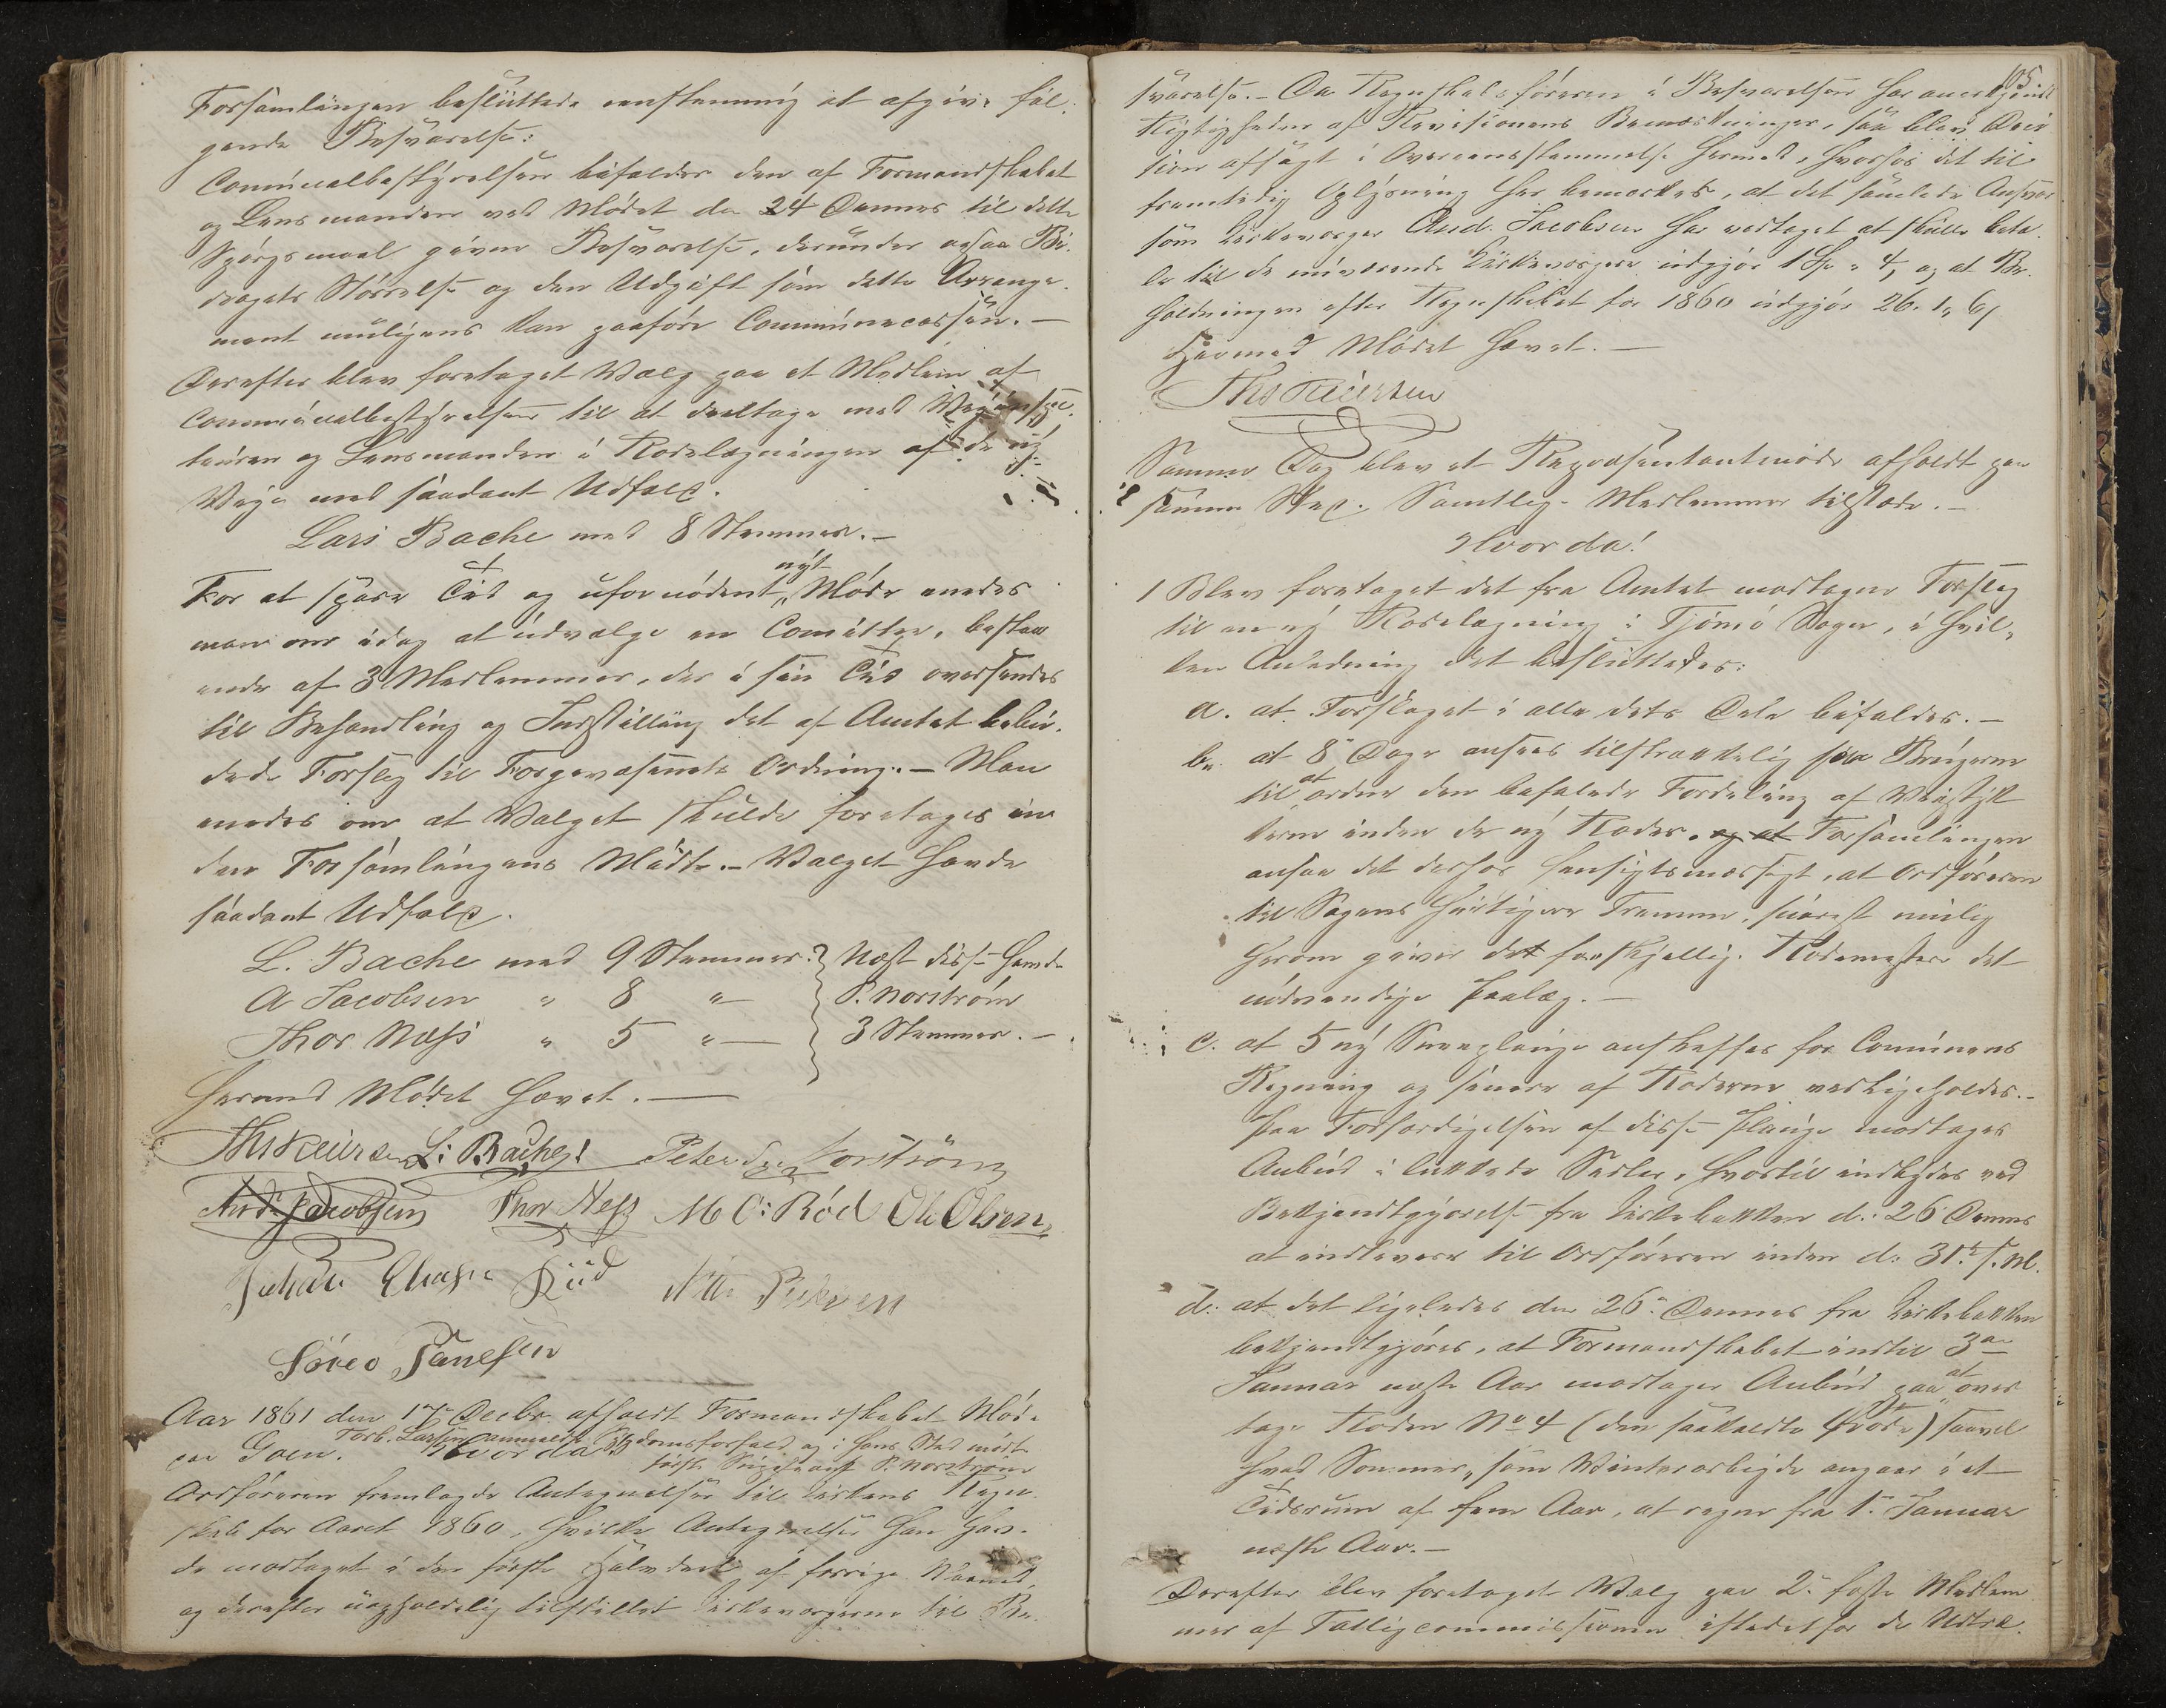 Forsamlingen besluttede eenstemmig at afgive føl-
gende Besvarelse:
Communalbestyrelsen bifalder den af Formandskabet
og Lensmanden ved Mødet den 24 Dennes til dette
Spørgsmaal givne Besvarelse, derunder ogsaa Bi-
dragets Størrelse og den Udgift som dette Arrange-
ment muligens kan paaføre Communecassen.—
Derefter blev foretaget Valg paa et Medlem af
Communalbestyrelsen til at deeltage med Veiinspec-
teuren og Lensmanden i Rodelægningen af de ny
Veye med saadant Udfald.
Lars Bache med 8 Stemmer.—
For at spare Tid og ufornødent nyt Møde enedes
man om idag at udvælge en Comittee, bestaa-
ende af 3 Medlemmer, der i sin Tid oversendes
til Behandling og Indstilling det af Amtet bebu-
dede Forslag til Forgevæsenets Ordning.— Man
enedes om at Valget skulde foretages in-
den Forsamlingens Midte.— Valget havde
saadant Udfald.
L. Bache med 9 Stemmer. Næst disse havde
A Jacobsen " 8 "— P. Norström
Thor Næss " 5 "— 3 Stemmer.—
Hermed Mødet hævet.—
Ths Reiersen L: Bache! Peter Norström
And: Jacobsen Thor Ness M C: Röd Ole Olsen
Johan Chase Ruud Nils Pedersen
Sören Hansen
Aar 1861 den 17de Decbr. afholdt Formandskabet Møde
Torb. Larsen anmeldt Sygdomsforfald og i hans Sted mødte
paa Goen. Hvorda: første Suppleant P. Norström
Ordføreren fremlagde Antegnelser til Kirkens Regn-
skab for Aaret 1860, hvilke Antegnelser han hav-
de modtaget i den første Halvdeel af forrige Maaned,
og derefter uopholdelig tilstillet Kirkevergerne til Be-
105
svarelse.— Da Regnskabsføreren i Besvarelsen har anerkjendt
Rigtigheden af Revisionens Bemærkninger, saa blev Deci-
sion afsagt i Overeensstemmelse hermed, hvorhos det til
fremtidig Oplysning her bemærkes, at det samlede Ansvar
som Kirkeverger And. Jacobsen har vedtaget at skulle beta-
le til de nuværende Kirkeverger udgjør 1 Sp " 4, og at Be-
holdningen efter Regnskabet for 1860 udgjør 26. 1, 6,
Hermed Mødet hævet.—
Ths Reiersen
Samme Dag blev et Repræsentantmøde afholdt paa
samme Sted. Samtlige Medlemmer tilstede.—
Hvorda!
1 Blev foretaget det fra Amtet modtagne Forslag
til en ny Rodelægning i Tjømø Sogn, i hvil-
ken Anledning det besluttedes:
a. at Forslaget i alle dets Dele bifaldes.—
b. at 8 Dage ansees tilstrækkelig for Brugerne
til at ordne den befalede Fordeling af Veistyk-
kerne inden de ny Roder. og at Forsamlingen
ansaa det derfor hensigtsmæssigt, at Ordføreren
til Sagens hurtigere Fremme, snarest mulig
herom giver det forskjellige Rodemestere det
nødvendige Paalæg.—
c. at 5 ny Sneeplouge anskaffes for Communens
Regning og senere af Roderne vedligeholdes.—
Paa Forfærdigelsen af disse Plouge modtages
Anbud i lukkede Sedler, hvortil indbydes ved
Bekjendtgjørelse fra Kirkebakken d: 26 Dennes
at indlevere til Ordføreren inden d: 31te s. M.
d: at det ligeledes den 26de Dennes fra Kirkebakken
bekjendtgjøres, at Formandskabet indtil 3de
Januar næste Aar modtager Anbud paa at over
tage Roden No 4 (den saakaldte Frode) saavel
hvad Sommer- som Vinterarbeyde angaar i et
Tidsrum af fem Aar, at regne fra 1ste Januar
næste Aar.—
Derefter blev foretaget Valg paa 2de faste Medlem-
mer af Fattigcommissionen istedetfor de Udtræ-